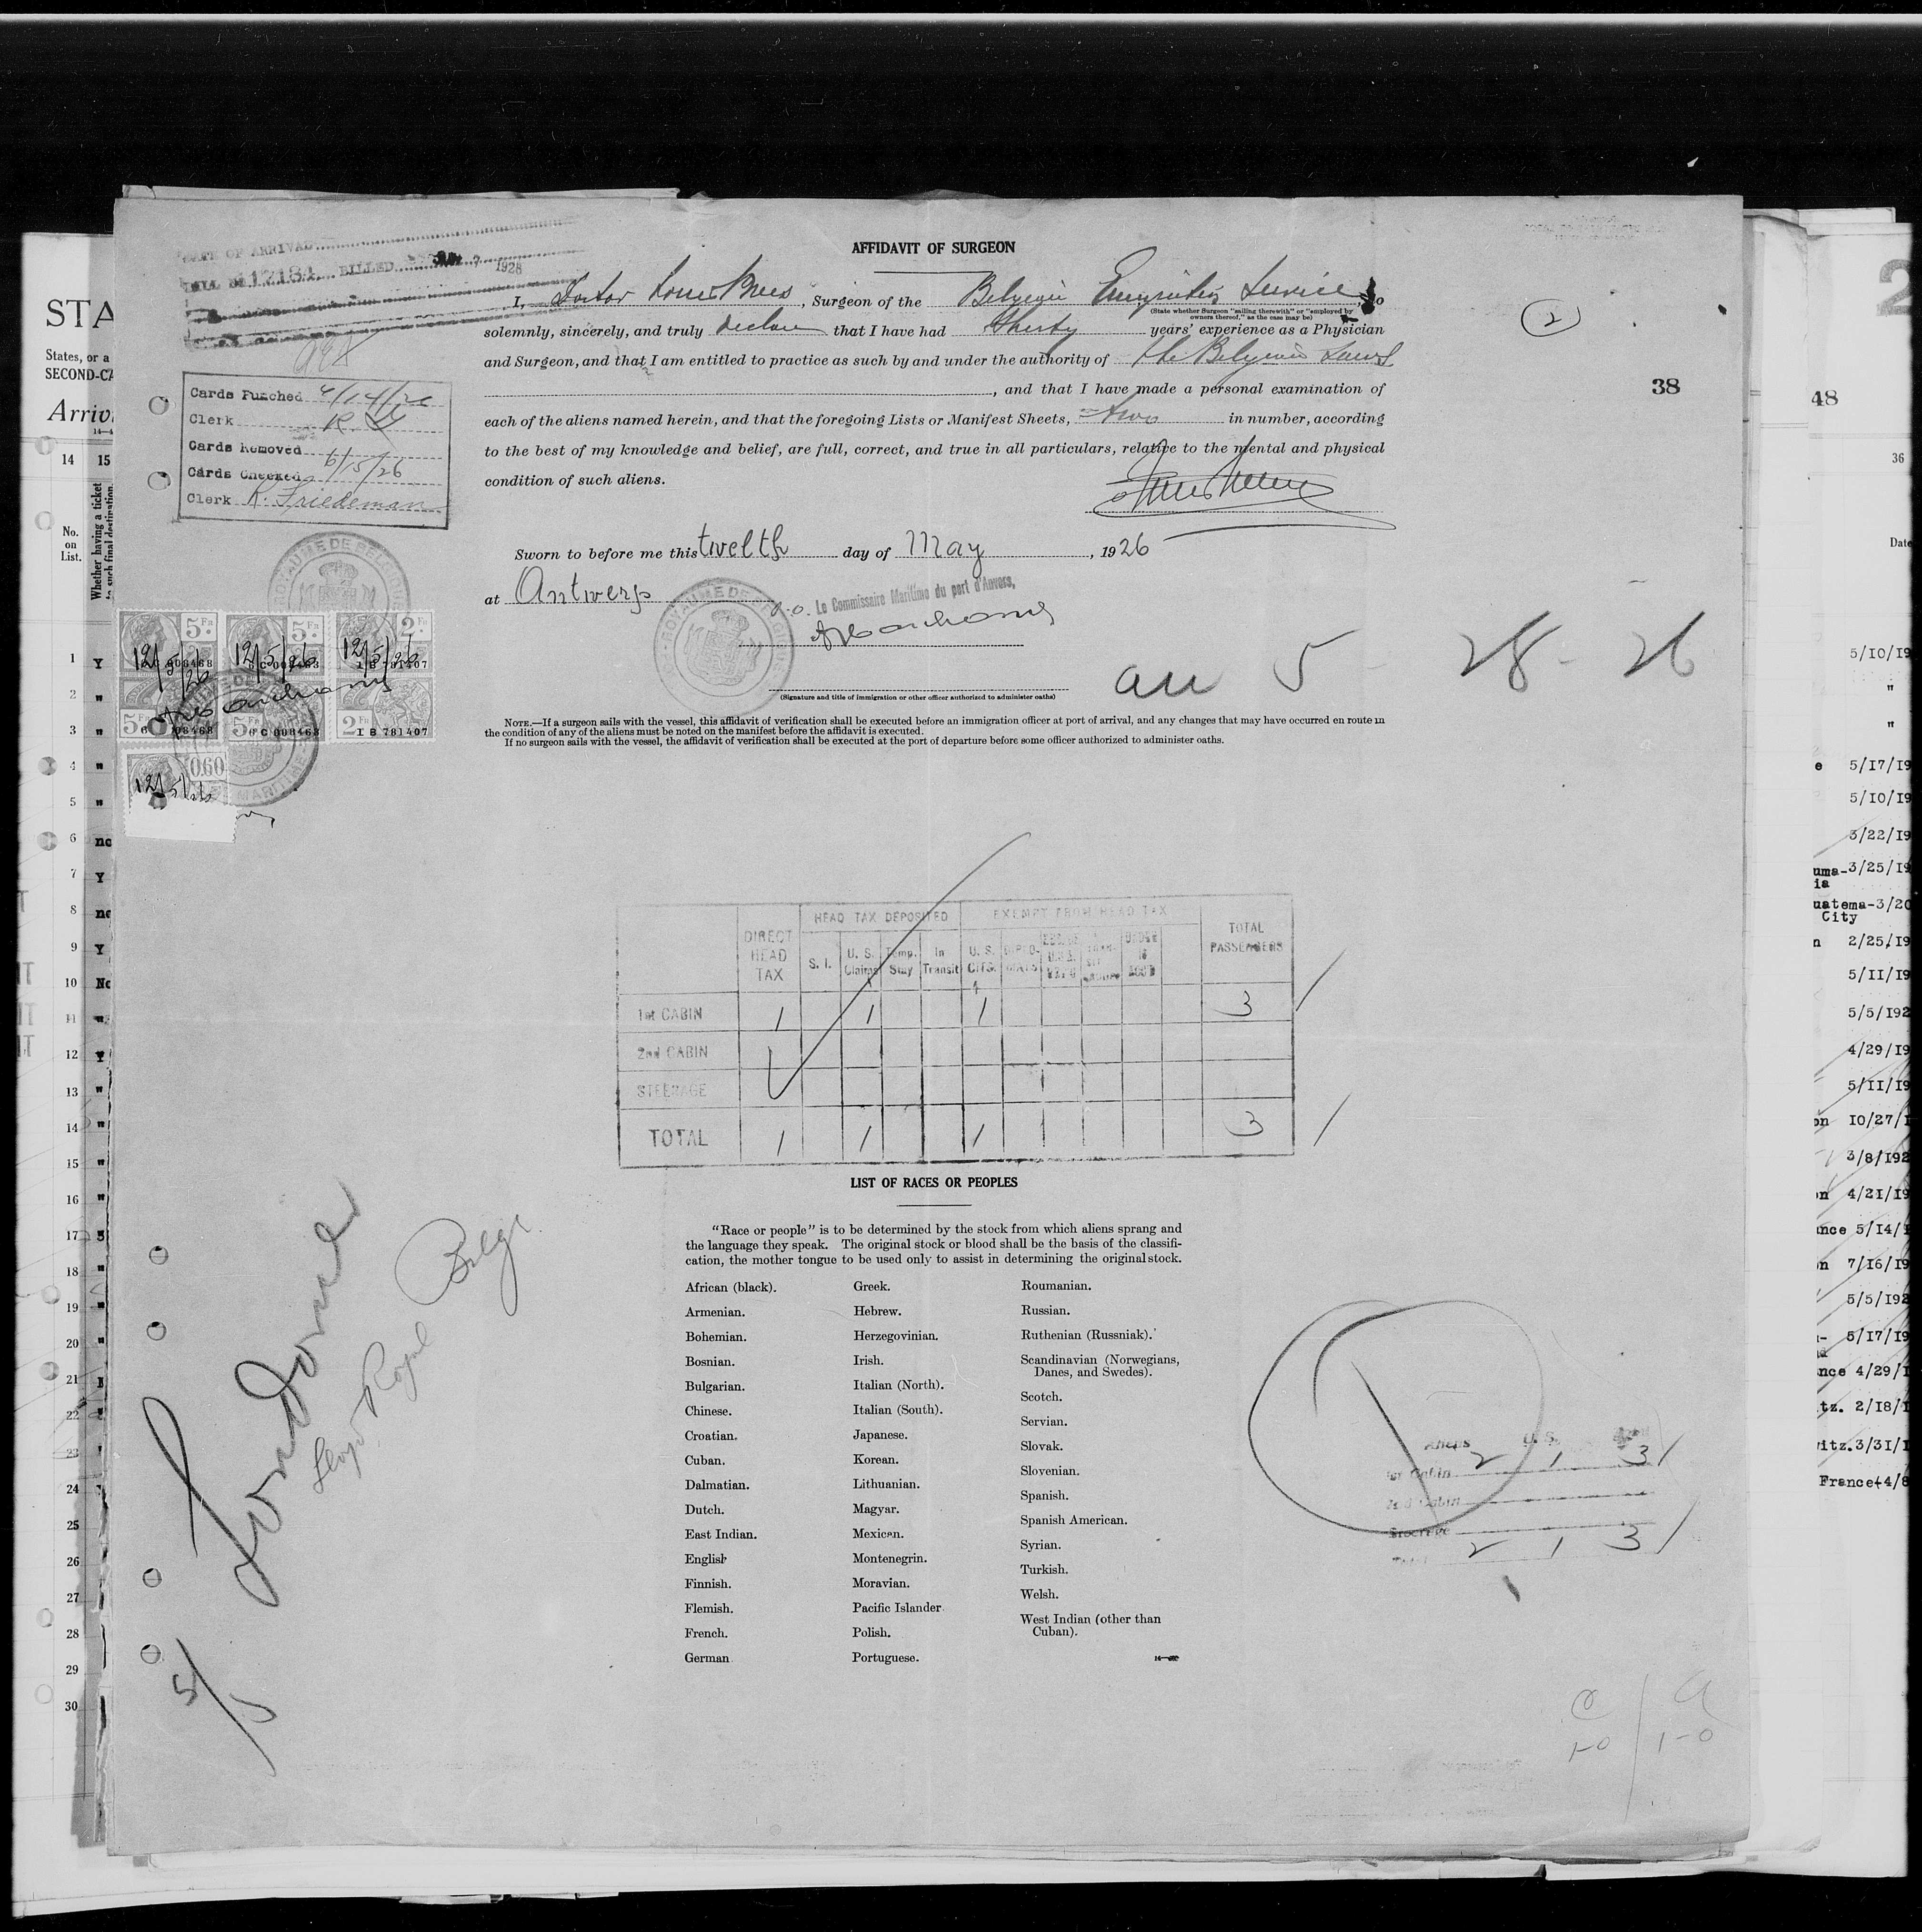 AFFIDAVIT OF SURGEON
DATE OF ARRIVAL
BILLED 7 1928
I, Doctor Louis , Surgeon of the Service, do
(State whether Surgeon "sailing therewith" or "employed by
owners thereof," as the case may be)
solemnly, sincerely, and truly declare that I have had thirty years' experience as a Physician
and Surgeon, and that I am entitled to practice as such by and under the authority of the
, and that I have made a personal examination of
each of the aliens named herein, and that the foregoing Lists or Manifest Sheets, two in number, according
to the best of my knowledge and belief, are full, correct, and true in all particulars, relative to the mental and physical
condition of such aliens.
2
38
Cards Punched
Clerk
Cards Removed
Cards Checked 6/15/26
Clerk K. Friedeman
Sworn to before me this twelth day of May, 1926
at Antwerp
ROYAUME DE BELGIQUE
a.o. Le Commissaire Maritime du port d'Anvers,
(Signature and title of immigration or other officer authorized to administer oaths)
arr 5 - 28 - 26
5 Fr 5 Fr 2 Fr
12/5/26 12/5/26 12/5/26
5 Fr 5 Fr 2 Fr
I B 781407
0.60
12/5/26
NOTE.—If a surgeon sails with the vessel, this affidavit of verification shall be executed before an immigration officer at port of arrival, and any changes that may have occurred en route in
the condition of any of the aliens must be noted on the manifest before the affidavit is executed.
If no surgeon sails with the vessel, the affidavit of verification shall be executed at the port of departure before some officer authorized to administer oaths.
HEAD TAX DEPOSITED EXEMPT FROM HEAD TAX
DIRECT HEAD TAX S. I. U. S. Claims Temp. Stay In Transit U. S. CITS. DIPLO-MATS UNDER 16 TOTAL PASSENGERS
1st CABIN 1 1 1 3
2nd CABIN
STEERAGE
TOTAL 1 1 1 3
LIST OF RACES OR PEOPLES
"Race or people" is to be determined by the stock from which aliens sprang and
the language they speak. The original stock or blood shall be the basis of the classifi-
cation, the mother tongue to be used only to assist in determining the original stock.
African (black).
Armenian.
Bohemian.
Bosnian.
Bulgarian.
Chinese.
Croatian.
Cuban.
Dalmatian.
Dutch.
East Indian.
English
Finnish.
Flemish.
French.
German
Greek.
Hebrew.
Herzegovinian.
Irish.
Italian (North).
Italian (South).
Japanese.
Korean.
Lithuanian.
Magyar.
Mexican.
Montenegrin.
Moravian.
Pacific Islander
Polish.
Portuguese.
Roumanian.
Russian.
Ruthenian (Russniak).
Scandinavian (Norwegians,
Danes, and Swedes).
Scotch.
Servian.
Slovak.
Slovenian.
Spanish.
Spanish American.
Syrian.
Turkish.
Welsh.
West Indian (other than
Cuban).
Londonier
Lloyd Royal
Belge
Aliens U. S.
1st Cabin 2 1 3
2nd Cabin
Steerage
Total 2 1 3
STA
States, or a
SECOND-CA
Arriv
14 15
No.
on
List.
Whether having a ticket
to such final destination.
1 Y
2 "
3 "
4 "
5 "
6 no
7 Y
8 no
9 Y
10 No
11 "
12 Y
13 "
14 "
15 "
16 "
17
18 "
19 "
20 "
21
22
23
24
25
26
27
28
29
30
2
48
36
Date
5/10/19
"
"
5/17/19
5/10/19
3/22/19
3/25/19
City
2/25/19
5/11/19
5/5/192
4/29/19
5/11/19
10/27/1
3/8/192
4/21/19
5/14/1
7/16/19
5/5/192
5/17/19
4/29/1
tz. 2/18/1
itz. 3/31/1
France 4/8